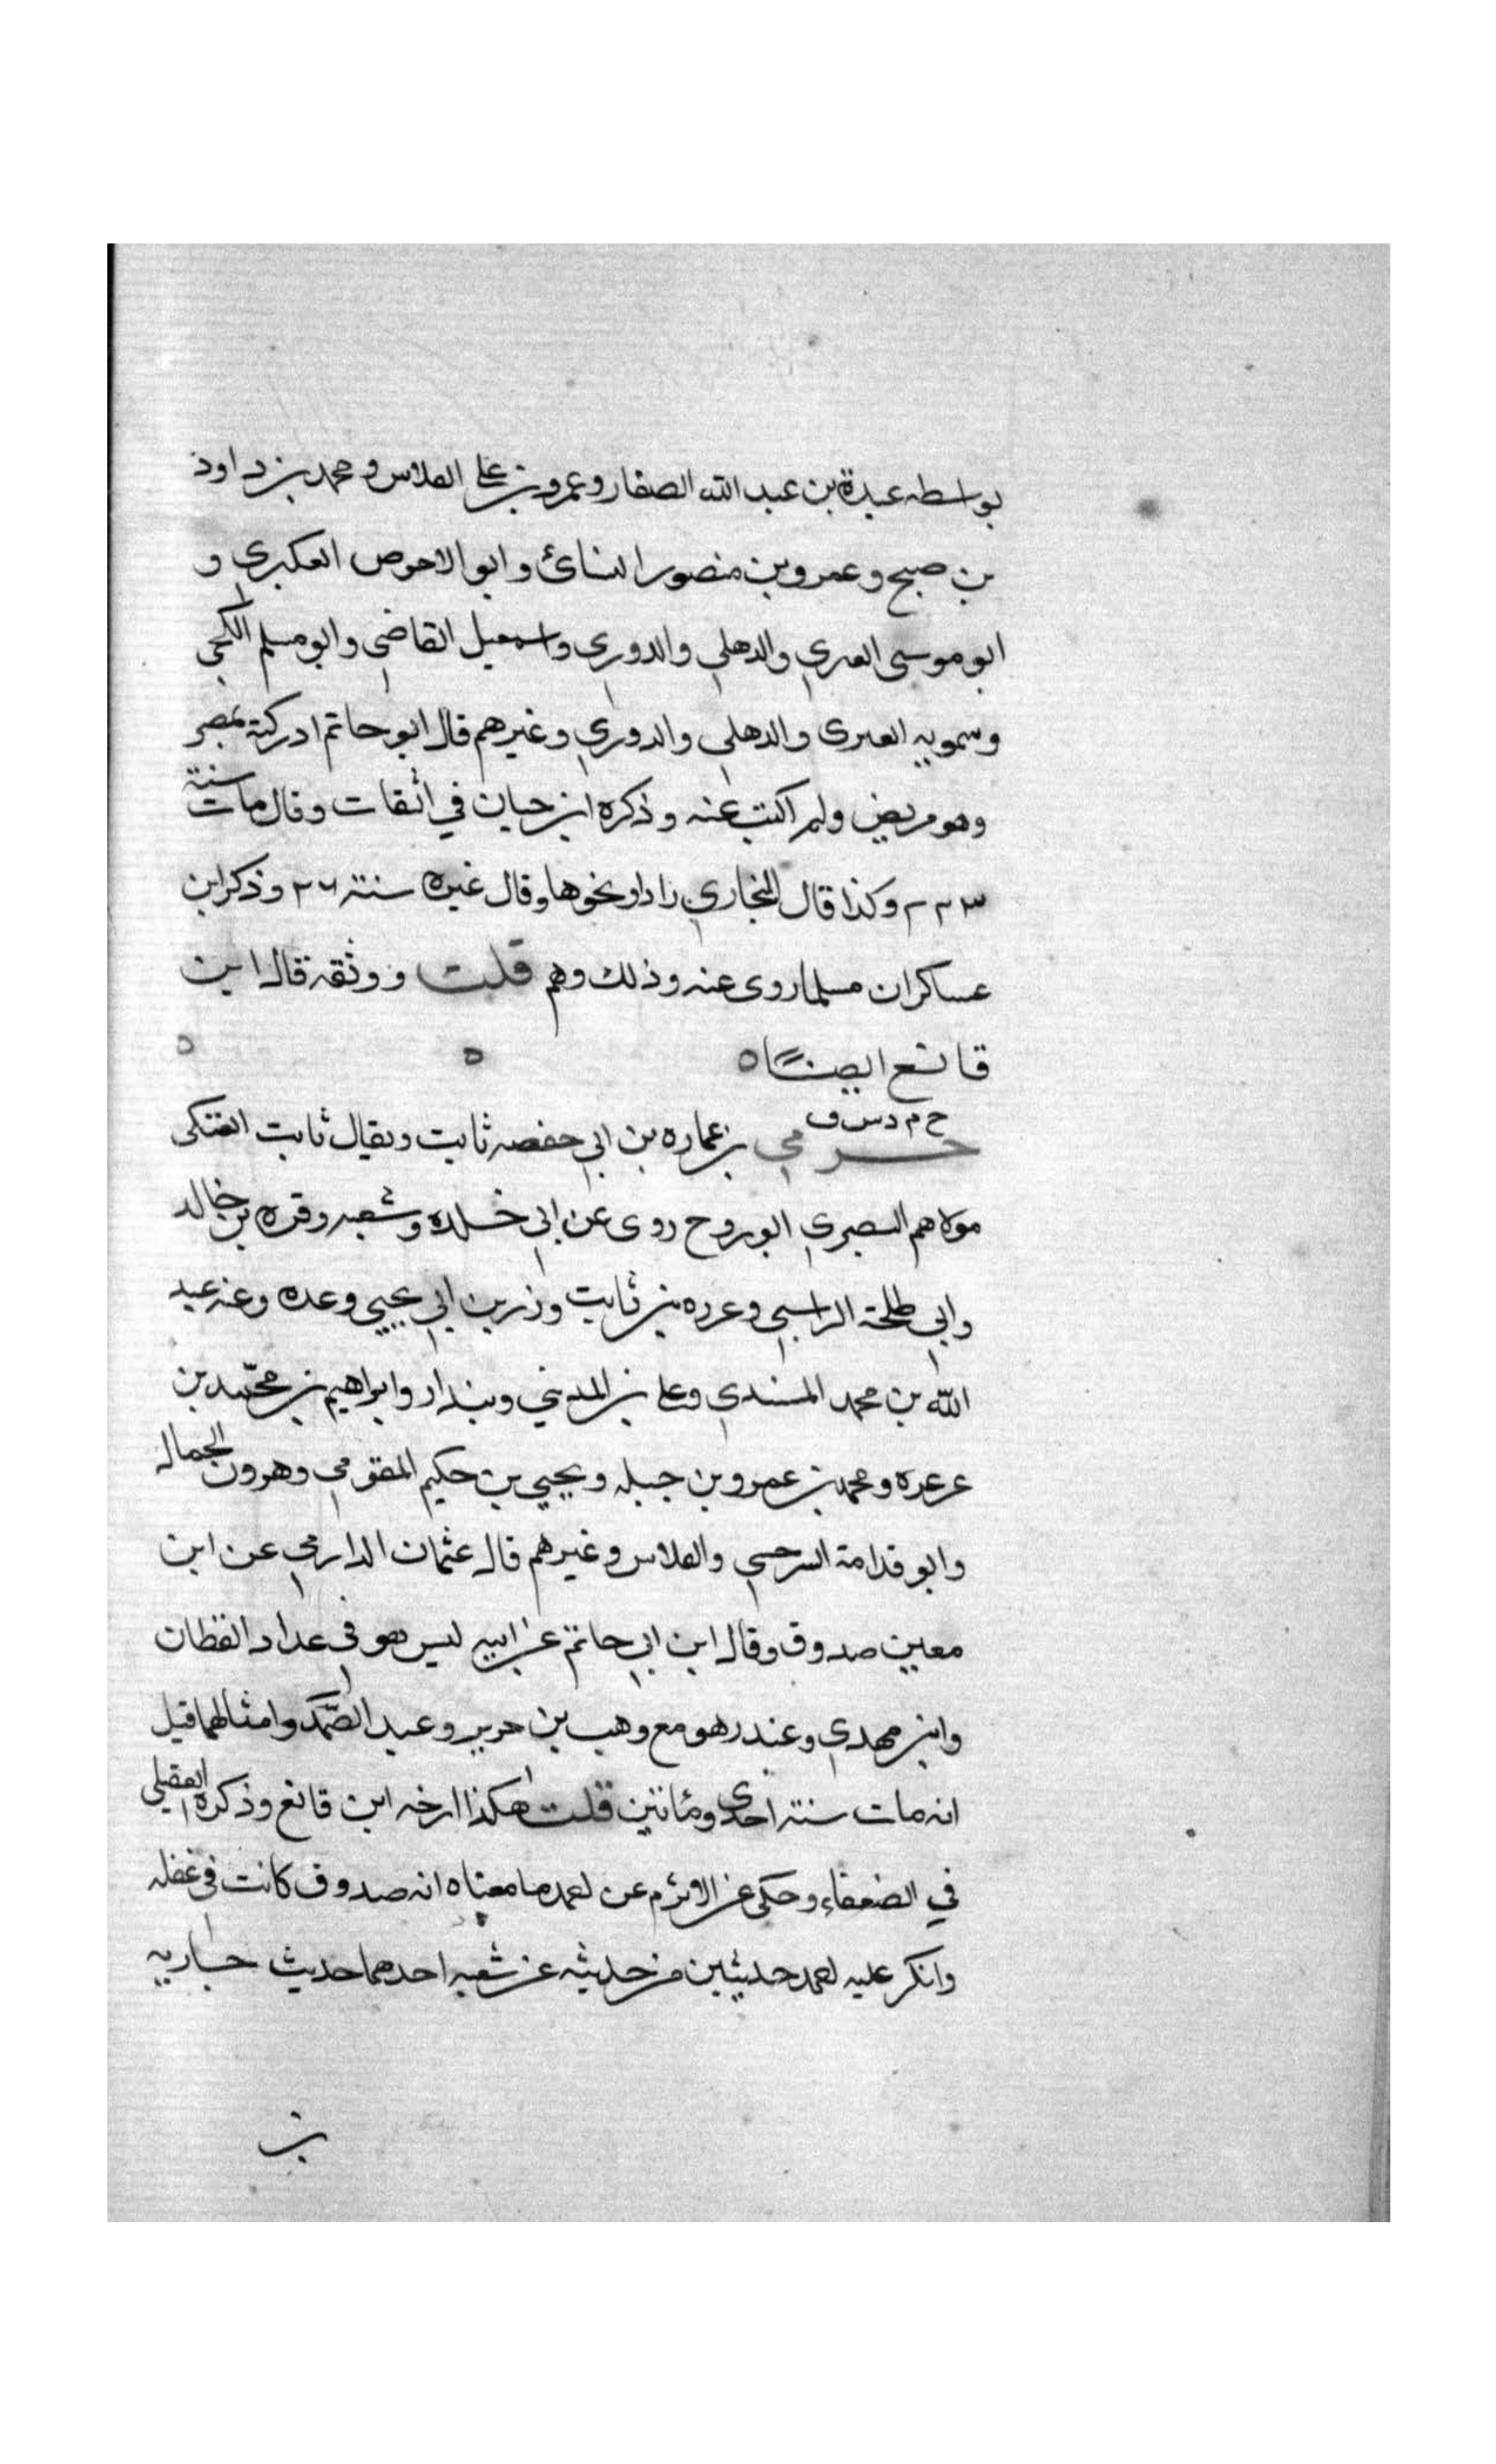 بواسطه عبدة بن عبد الله الصفار وعمرو بن علي الفلاس ومحمد بن داود
بن صبح وعمرو بن منصور النسائ وابو الاحوص العكبري و
ابو موسى العنبري والدهلي والدوري واسمعيل القاضي وابو مسلم الكجي
وسمويه العنبرى والدهلي والدوري وغيرهم قال ابو حاتم ادركته بمصر
وهو مريض ولم اكتب عنه وذكره ابن حبان في الثقات وقال مات سنة
٢٢٣ وكذا قال البخاري زاد او نحوها وقال غيره سنة ٢٦ وذكر ابن
عساكر ان مسلما روى عنه وذلك وهم قلت ووثقه قال ابن
قانع ايضًا ه ه ه
خ م د س ق
حرمي بن عماره بن ابي حفصه ثابت ويقال ثابت العتكى
مولاهم البصري ابو روح روى عن ابي خلده وشعبه وقره بن خالد
وابي طلحة الراسبي وعزره بن ثابت وزر بن ابي يحيى وعده وعنه عبد
الله بن محمد المسندي وعلي بن المديني وبندار وابراهيم بن محمد بن
عرعره ومحمد بن عمرو بن جبله ويحيى بن حكيم المقومي وهرون الجمال
وابو قدامة السرخسي والفلاس وغيرهم قال عثمان الدارمي عن ابن
معين صدوق وقال ابن ابي حاتم عن ابيه ليس هو فى عداد القطان
وابن مهدي وغندر هو مع وهب بن جرير وعبد الصمد وامثالهما قيل
انه مات سنة احدى ومائتين قلت هكذا ارخه ابن قانع وذكره العقيلي
في الضعفاء وحكى عن الاثرم عن احمد ما معناه انه صدوق كانت فى غفله
وانكر عليه احمد حديثين من حديثه عن شعبه احدهما حديث حباريه
بن